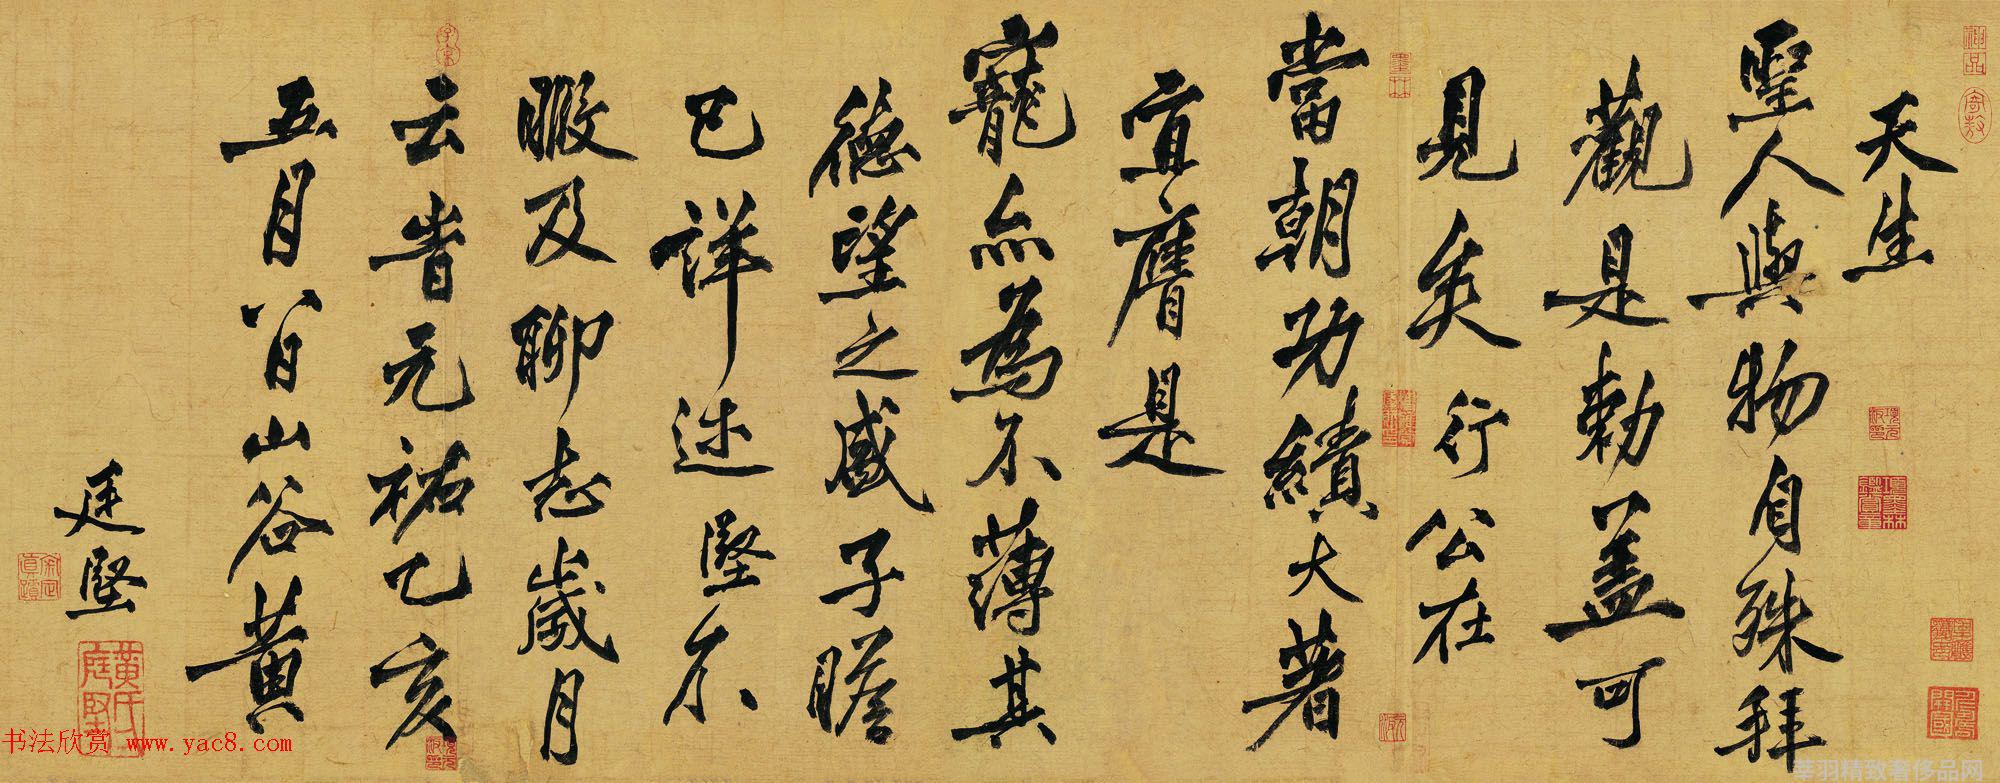 天生
聖人與物自殊拜
觀是勅蓋可
見矣行公在
當朝功績大著
宜膺是
寵亦為不薄其
德望之盛子瞻
已詳述堅不
暇及聊志歲月
云時元祐乙亥
五月八日山谷黃
庭堅
神品
墨林
子京
黃氏庭堅
书法欣赏 www.yac8.com
莘羽精致奢侈品网